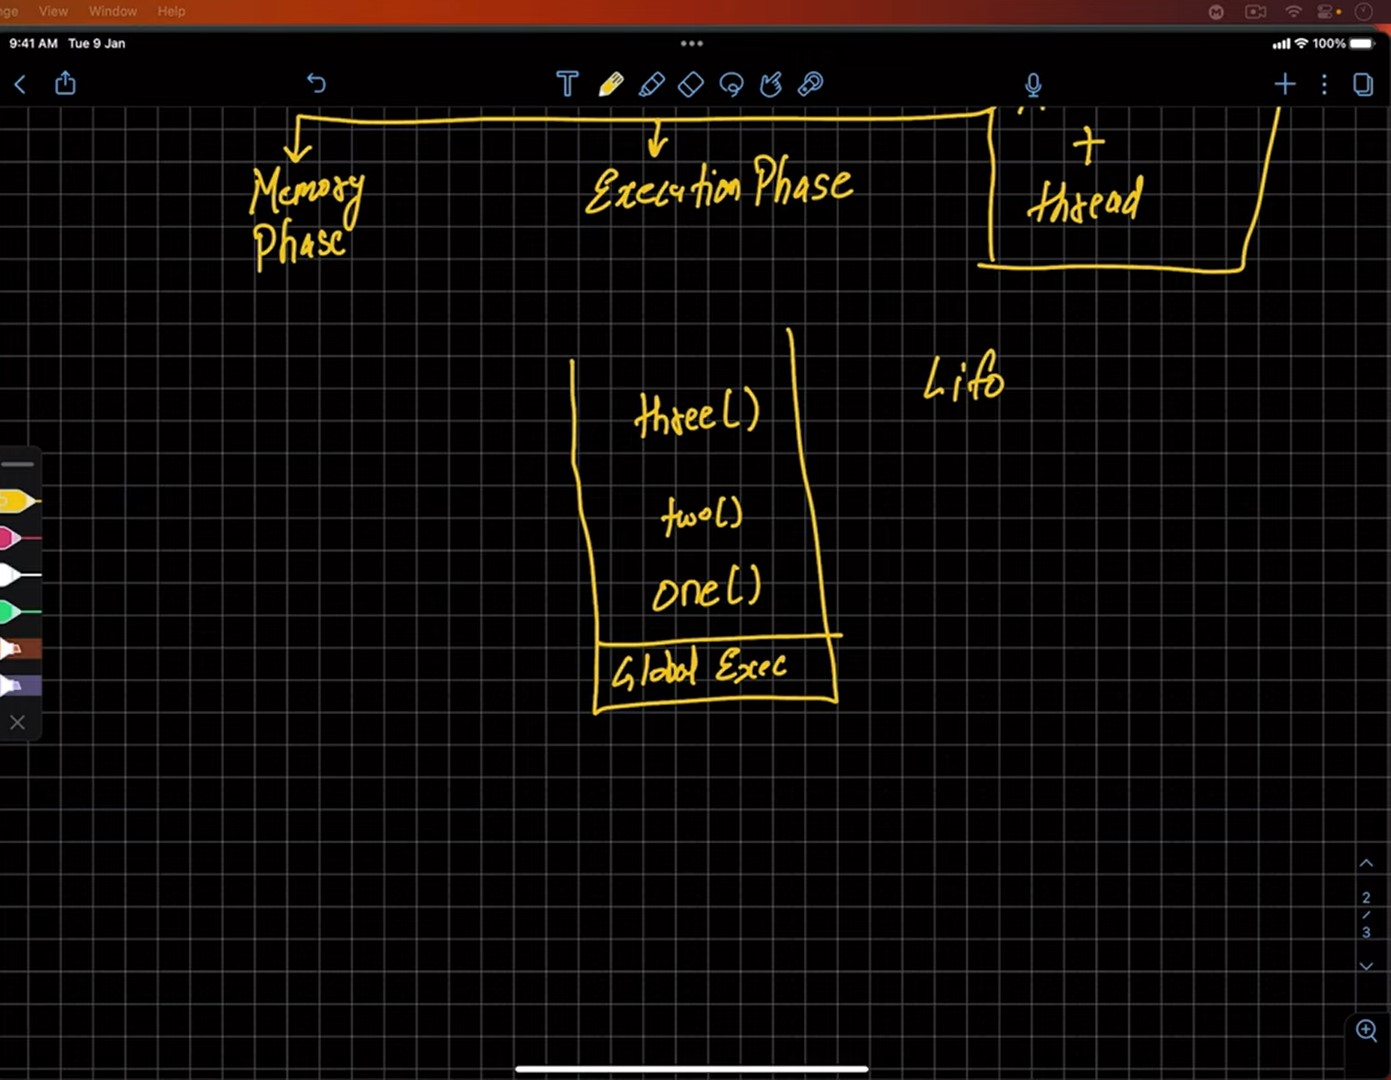 nge View Window Help
9:41 AM Tue 9 Jan
100%
Memory
Phase
Execution Phase
+
thread
Lifo
three()
two()
one()
Global Exec
2
/
3